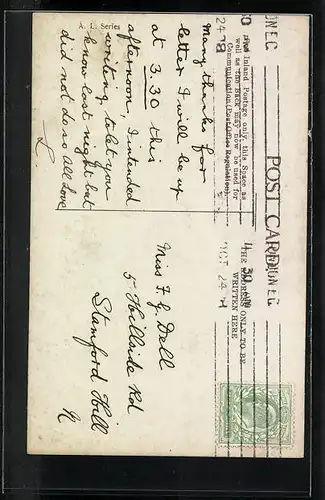 A. L. Series
POST CARD
For Inland Postage only, this Space as
well as the Back may now be used for
Communication (Post Office Regulation).
THE ADDRESS ONLY TO BE
WRITTEN HERE
Many thanks for
letter I will be up
at 3.30 this
afternoon, I intended
writing to let you
know last night but
did not do so All Love
L
Miss F. G. Dell
5 Hillside Rd
Stamford Hill
N